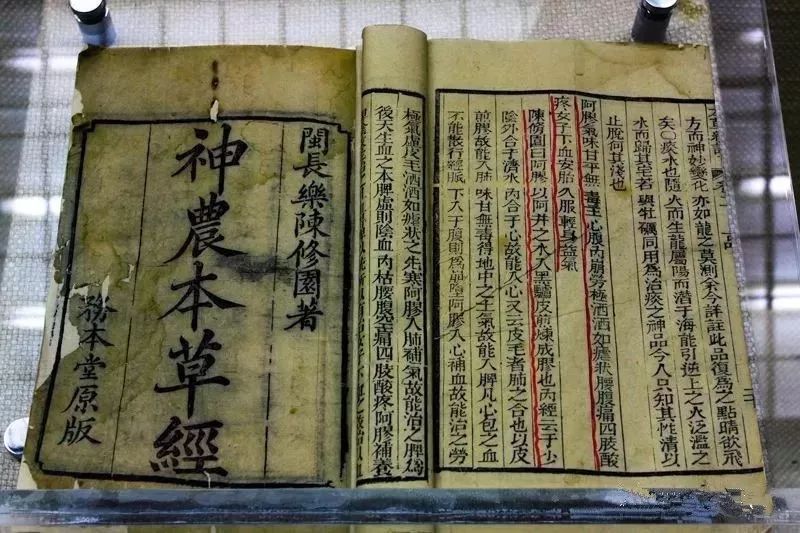 閩長樂陳修園著
神農本草經
務本堂原版
方而神妙變化亦如龍之莫測余今詳註此品復為之點睛欲飛
矣〇痰水也隨火而生龍屬陽而潛于海能引逆上之火泛濫之
水而歸其宅若與牡礪同用為治痰之神品今人只知其性濇以
止脫何其淺也
阿膠氣味甘平無毒主心腹內崩勞極洒洒如瘧狀腰腹痛四肢酸
疼女子下血安胎久服輕身益氣
陳修園曰阿膠以阿井之水入黑驢皮煎煉成膠也內經云手少
陰外合于濟水內合于心故能入心又云皮毛者肺之合也以皮
煎膠故能入肺味甘無毒得地中之土氣故能入脾凡心包之血
不能散行經脈下入于腹則為崩墮阿膠入心補血故能治之勞
極氣虛皮毛洒洒如瘧狀之先寒阿膠入肺補氣故能治之脾為
後天生血之本脾虛則陰血內枯腰腹空痛四肢酸疼阿膠補養